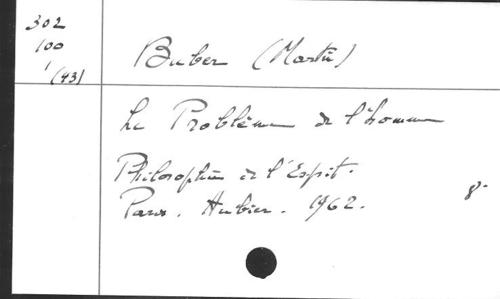 302
100
(43)
Buber (Martin)
Le Problème de l'homme
Philosophie de l'Esprit.
Paris. Aubier. 1962. 8°